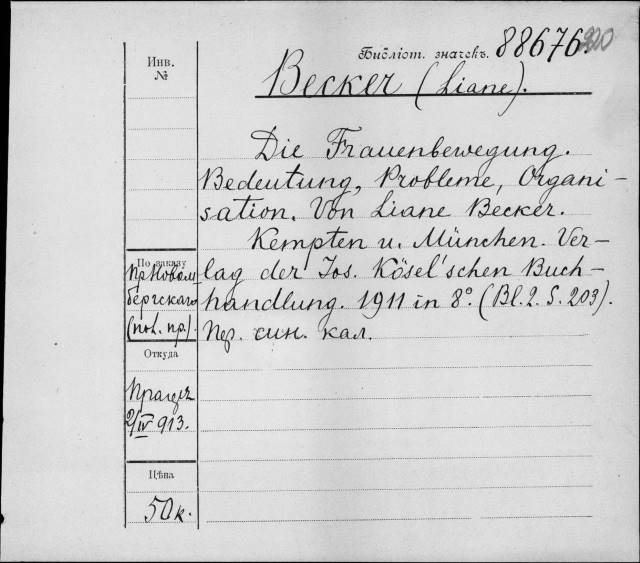 Библіот. значекъ. 88676.
Инв. №
Becker (Liane).
Die Frauenbewegung.
Bedeutung, Probleme, Organi-
sation. Von Liane Becker.
Kempten u. München. Ver-
lag der Jos. Kösel'schen Buch-
handlung. 1911 in 8º. (Bl. 2. S. 203).
Пер. син. кал.
По заказу
бергскаго
Откуда
2/IV 913.
Цѣна
50 к.